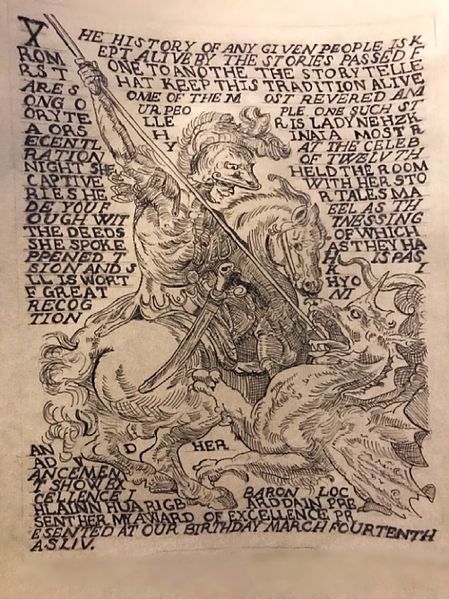 X HE HISTORY OF ANY GIVEN PEOPLE IS K
EPT ALIVE BY THE STORIES PASSED F
ROM ONE TO ANOTHE THE STORYTELLE
RS T HAT KEEP THIS TRADITION ALIVE
ARE S OME OF THE M OST REVERED AM
ONG O UR PEO PLE ONE SUCH ST
ORYTE LLE R IS LADY NEHZK
A ORS H INAIA MOST R
ECENTL Y AT THE CELEB
RATION OF TWELVTH
NIGHT SHE HELD THE ROOM
CAPTIVE WITH HER STO
RIES HE R TALES MA
DE THE EEL AS TH
OUGH WIT NESSING
THE DEEDS OF WHICH
SHE SPOKE AS THEY HA
PPENED T H IS PAS
SION AND S K I
LL IS WORT HYO
F GREAT NI
RECOG
TION
AN D HER
AD
ANCEMEN
T SHOW EX
CELLENCE I BARON LOC
HLAINN RUA RIGB PRE
SENT HER MY AWARD OF EXCELLENCE PR
ESENTED AT OUR BIRTHDAY MARCH FOURTENTH
AS LIV.